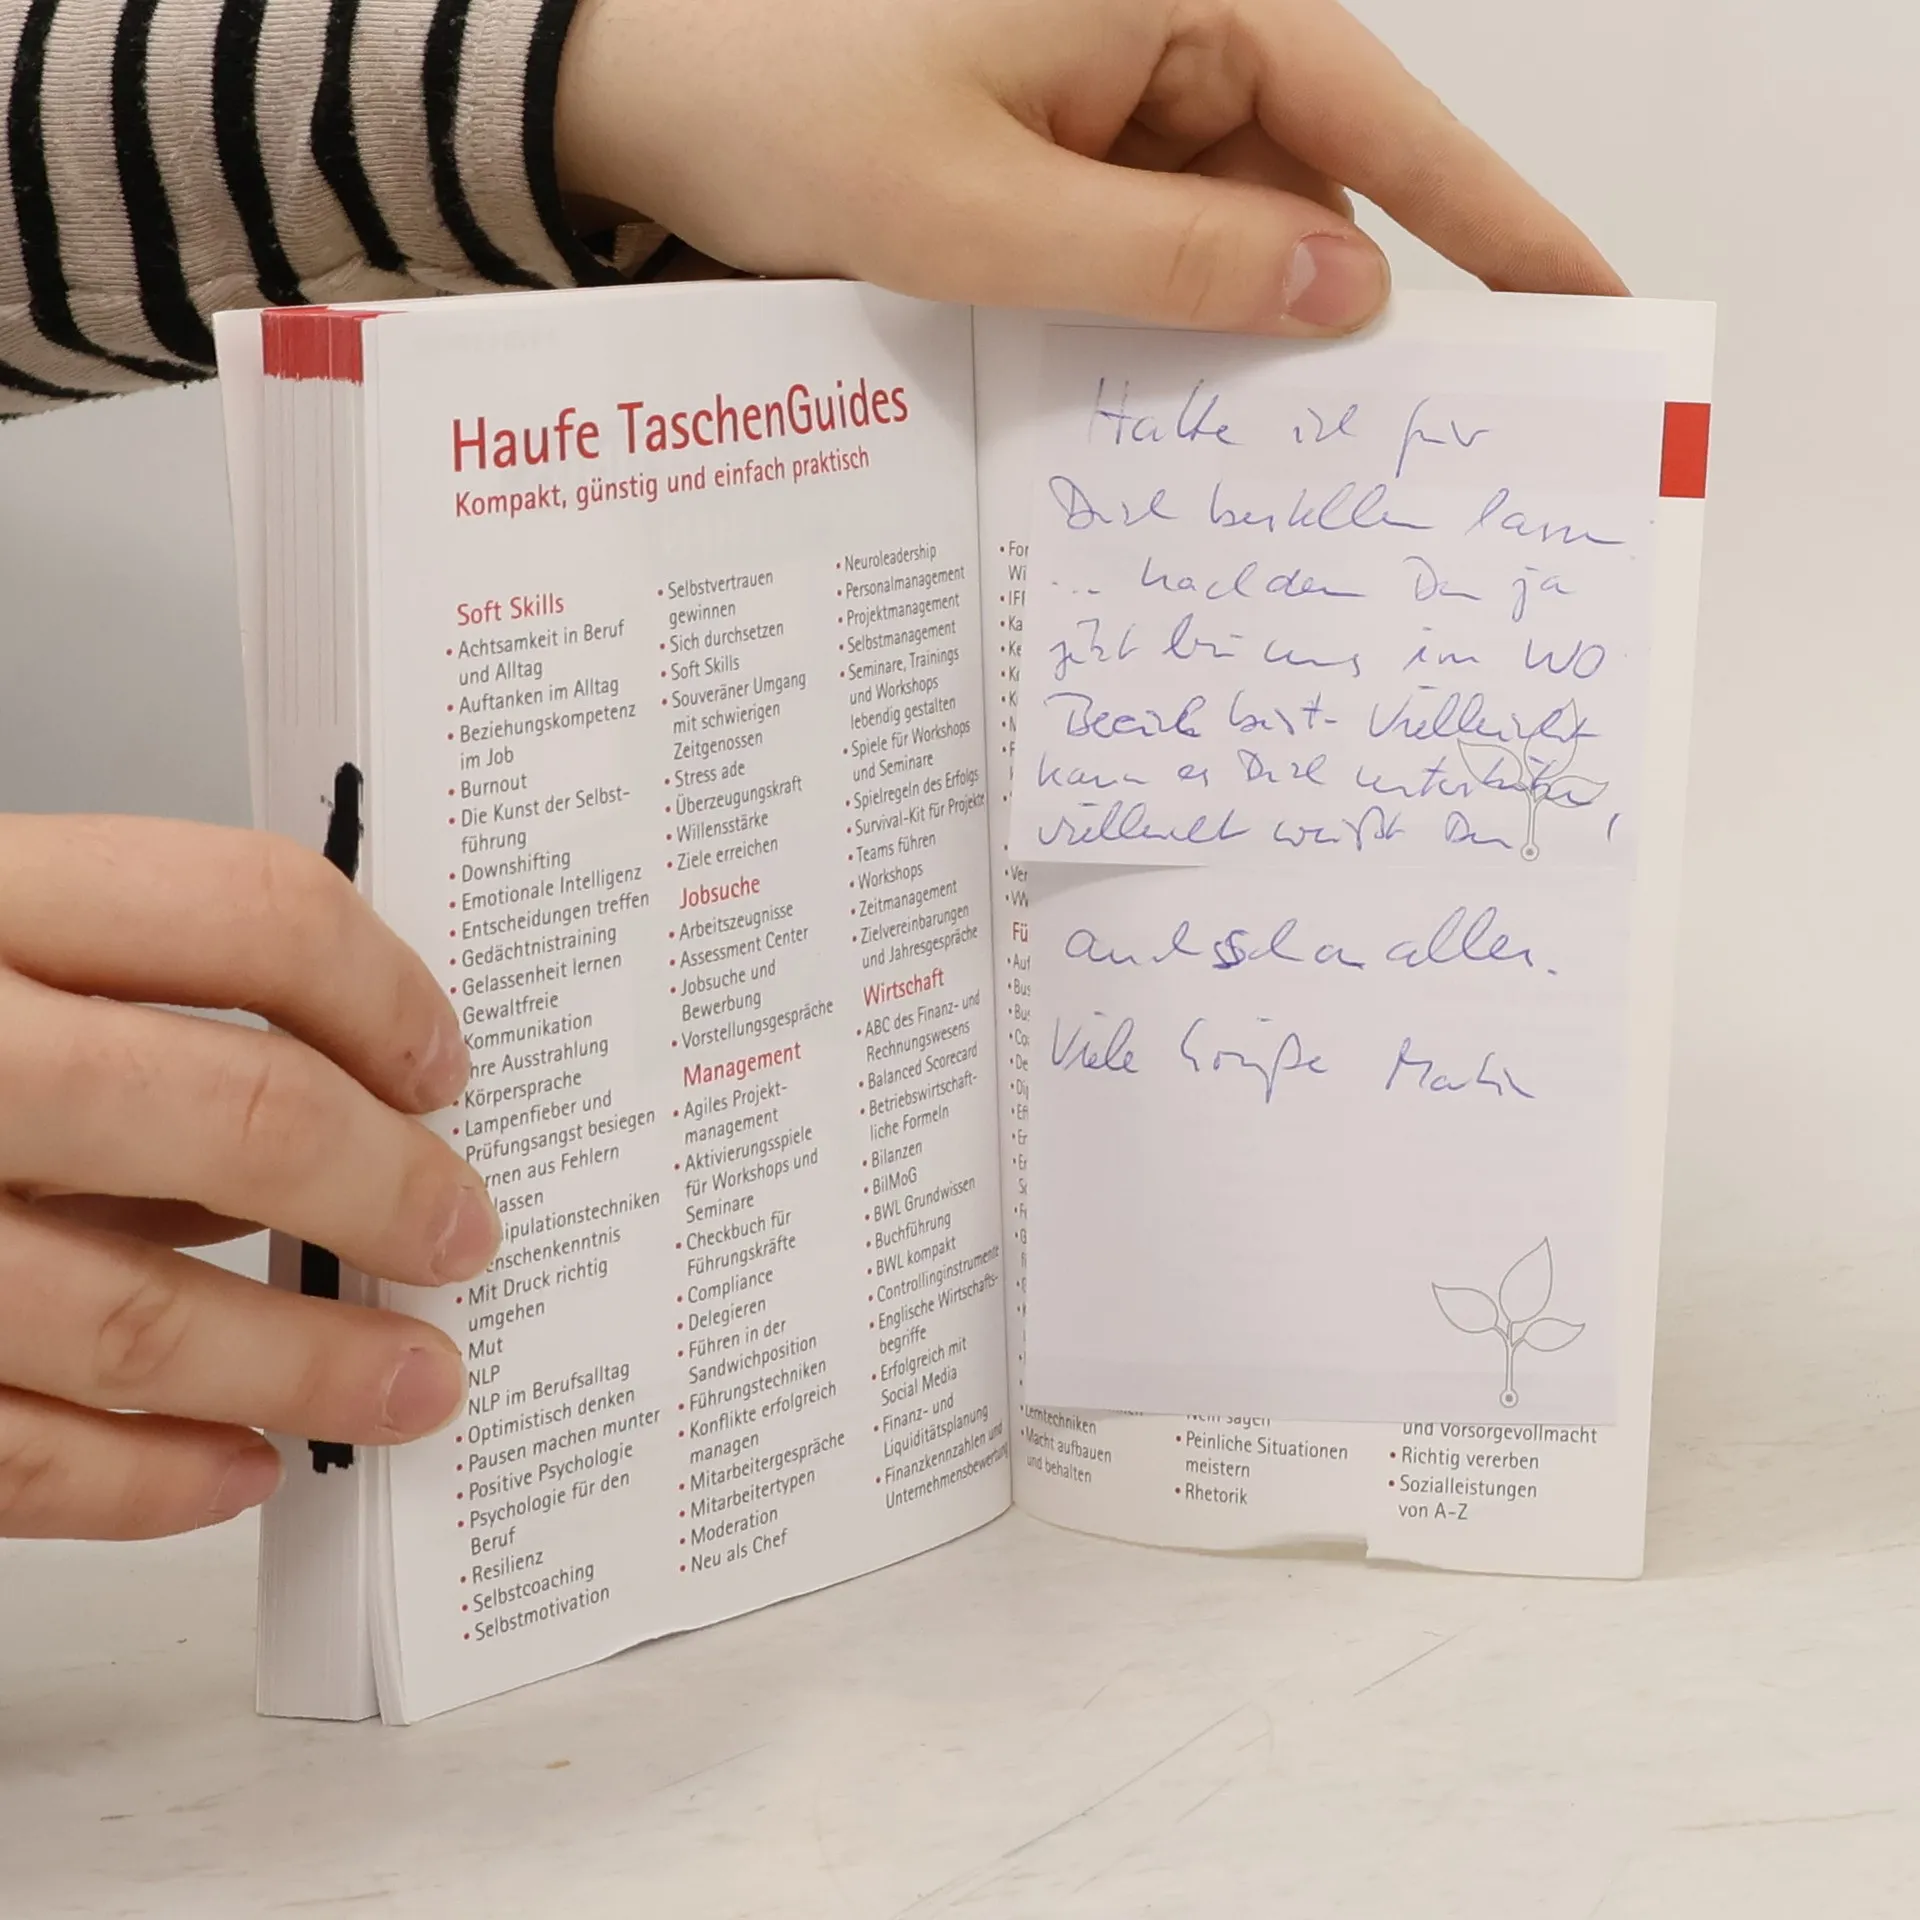 Haufe TaschenGuides
Kompakt, günstig und einfach praktisch
Soft Skills
• Achtsamkeit in Beruf
und Alltag
• Auftanken im Alltag
• Beziehungskompetenz
im Job
• Burnout
• Die Kunst der Selbst-
führung
• Downshifting
• Emotionale Intelligenz
• Entscheidungen treffen
• Gedächtnistraining
• Gelassenheit lernen
Gewaltfreie
Kommunikation
hre Ausstrahlung
• Körpersprache
• Lampenfieber und
Prüfungsangst besiegen
rnen aus Fehlern
lassen
ipulationstechniken
enschenkenntnis
• Mit Druck richtig
umgehen
• Mut
NLP
NLP im Berufsalltag
• Optimistisch denken
• Pausen machen munter
• Positive Psychologie
• Psychologie für den
Beruf
• Resilienz
• Selbstcoaching
• Selbstmotivation
• Selbstvertrauen
gewinnen
• Sich durchsetzen
• Soft Skills
• Souveräner Umgang
mit schwierigen
Zeitgenossen
• Stress ade
• Überzeugungskraft
• Willensstärke
• Ziele erreichen
Jobsuche
• Arbeitszeugnisse
• Assessment Center
• Jobsuche und
Bewerbung
• Vorstellungsgespräche
Management
• Agiles Projekt-
management
• Aktivierungsspiele
für Workshops und
Seminare
• Checkbuch für
Führungskräfte
• Compliance
• Delegieren
• Führen in der
Sandwichposition
• Führungstechniken
• Konflikte erfolgreich
managen
• Mitarbeitergespräche
• Mitarbeitertypen
• Moderation
• Neu als Chef
• Neuroleadership
• Personalmanagement
• Projektmanagement
• Selbstmanagement
• Seminare, Trainings
und Workshops
lebendig gestalten
• Spiele für Workshops
und Seminare
• Spielregeln des Erfolgs
• Survival-Kit für Projekte
• Teams führen
• Workshops
• Zeitmanagement
• Zielvereinbarungen
und Jahresgespräche
Wirtschaft
• ABC des Finanz- und
Rechnungswesens
• Balanced Scorecard
• Betriebswirtschaft-
liche Formeln
• Bilanzen
• BilMoG
• BWL Grundwissen
• Buchführung
• BWL kompakt
• Controllinginstrumente
• Englische Wirtschafts-
begriffe
• Erfolgreich mit
Social Media
• Finanz- und
Liquiditätsplanung
• Finanzkennzahlen und
Unternehmensbewertung
Hatte ich für
Dich bestellen lassen
... nachdem Du ja
jetzt bei uns im WO
Bereich bist - Vielleicht
kann es Dich unterstützen,
vielleicht weißt Du
auch schon alles.
Viele Grüße Martin
• Lerntechniken
• Macht aufbauen
und behalten
Nein sagen
• Peinliche Situationen
meistern
• Rhetorik
und Vorsorgevollmacht
• Richtig vererben
• Sozialleistungen
von A-Z